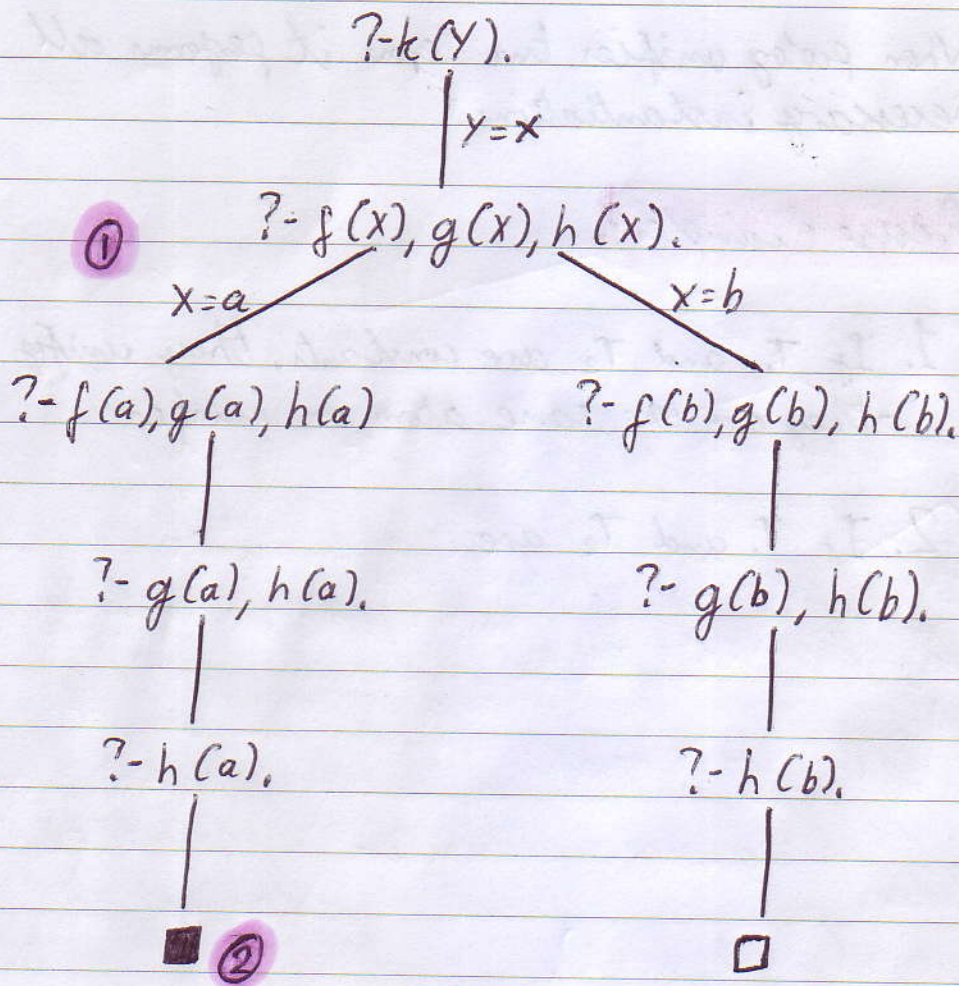 ?-k(Y).
Y=X
① ?-f(X), g(X), h(X).
X=a X=b
?-f(a), g(a), h(a) ?-f(b), g(b), h(b).
?-g(a), h(a). ?-g(b), h(b).
?-h(a). ?-h(b).
②